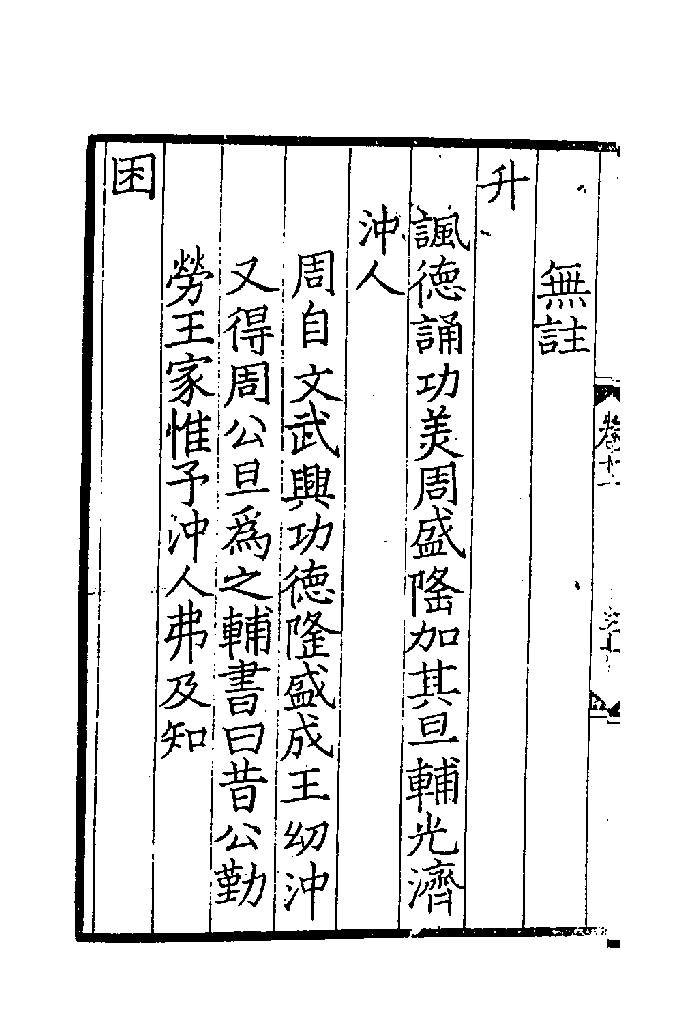 無註
升
諷德誦功美周盛隆加其旦輔光濟
沖人
周自文武興功德隆盛成王幼沖
又得周公旦為之輔書曰昔公勤
勞王家惟予沖人弗及知
困